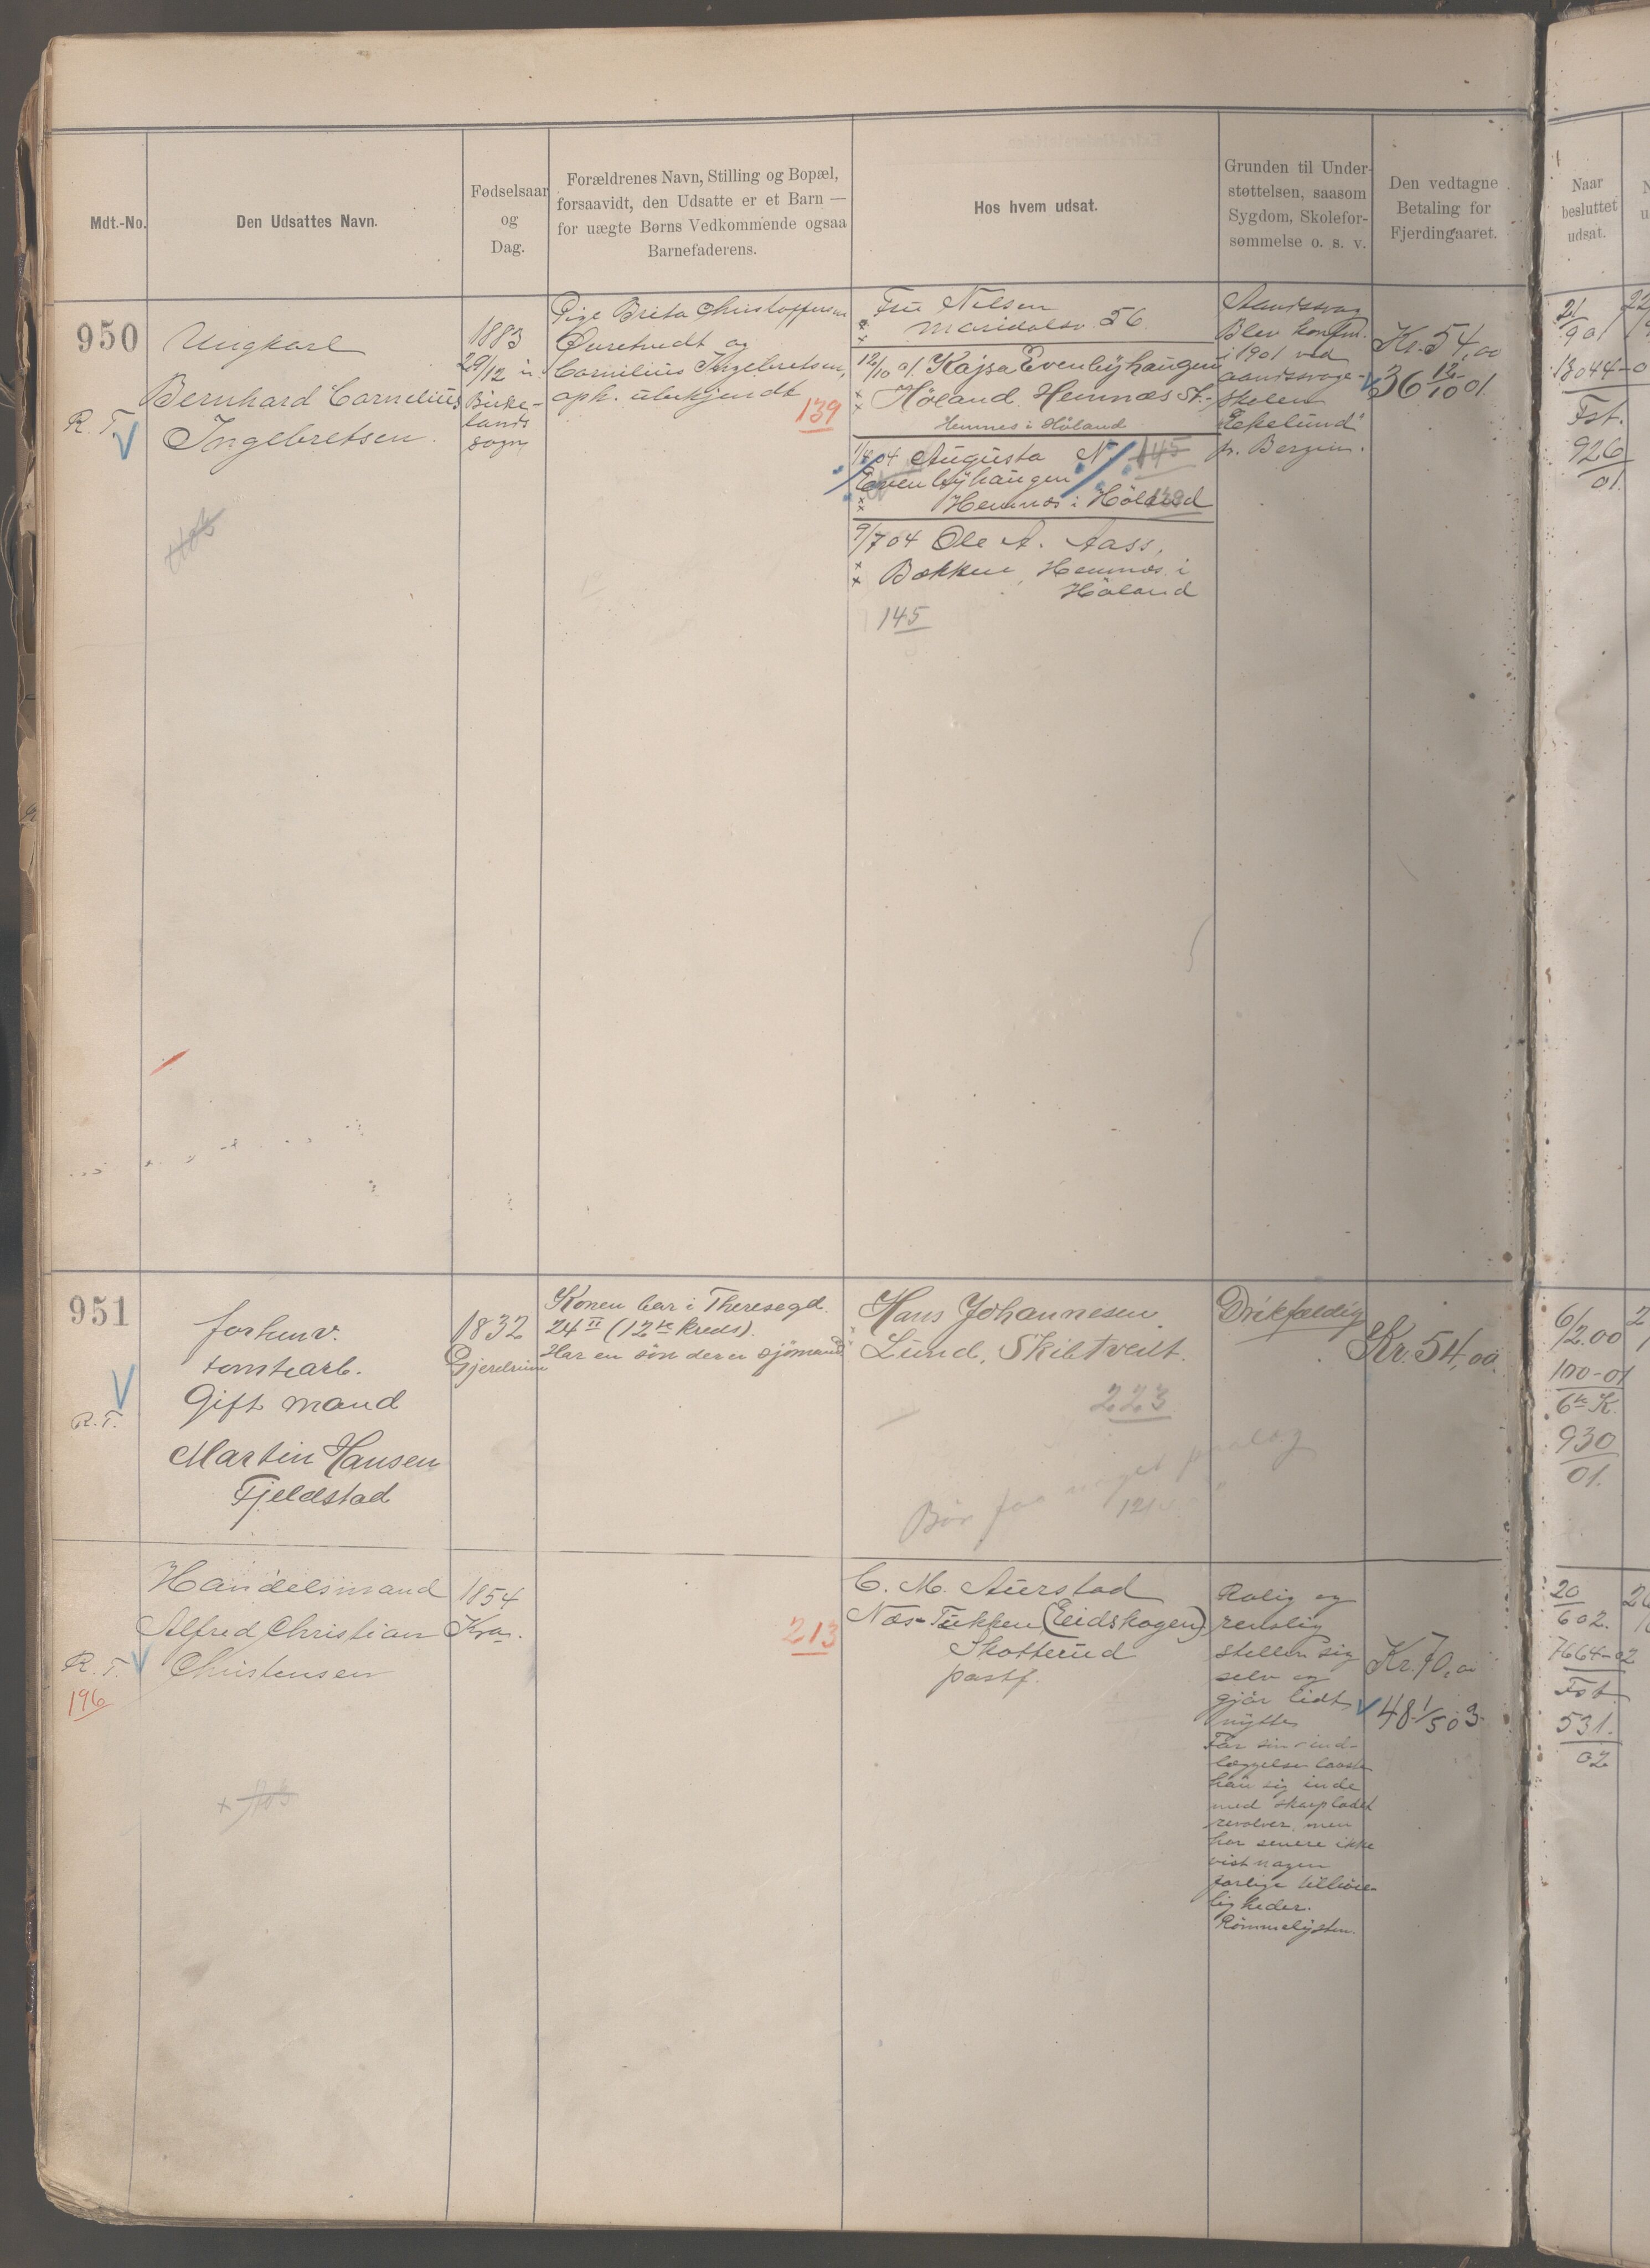 Mdt.-No.
Den Udsattes Navn.
Fødselsaar
og
Dag.
Forældrenes Navn, Stilling og Bopæl,
forsaavidt, den Udsatte er et Barn —
for uægte Børns Vedkommende ogsaa
Barnefaderens.
Hos hvem udsat.
Grunden til Under-
støttelsen, saasom
Sygdom, Skolefor-
sømmelse o. s. v.
Den vedtagne
Betaling for
Fjerdingaaret.
Naar
besluttet
udsat.
950
R. T.
Ungkarl
Bernhard Cornelius
Ingebretsen.
1883
29/12 i
Birke-
lands
sogn
Pige Brita Christoffersen
og
Cornelius Ingebretsen,
oph. ubekjendt
139
Fru Nilsen
Maridalsv. 56.
12/10 01. Kajsa Evenbyhaugen
Höland. Hemnæs St.
Hemnes i Höland
1/4 04 Augusta N 145
Evenbyhaugen
Hemnæs i Höland
9/7 04 Ole A. Aass,
Bakken, Hemnæs i
Höland
145
Aandssvag
Blev konfirm.
i 1901 ved
aandssvage-
skolen
"Ekelund"
pr. Bergen.
Kr. 54,00
36 12/10 01.
21/
901
18044-0
Fst.
926
01.
951
R. T.
forhenv.
tomtearb.
Gift mand
Martin Hansen
Fjeldstad
1832
Gjerdrum
Konen bor i Theresegd.
24 II (12te kreds).
Har en sön der er sjömand
Hans Johannesen
Lund, Skibtvedt.
223
Bör faa noget paalag
Drikfældig
Kr. 54,00.
6/2.00
100-01
6te K.
930
01.
R. T.
196
Handelsmand
Alfred Christian
Christensen
1854
Kra.
213
C. M. Aurstad
Næs-Tukken (Eidskogen)
Skotterud
postf.
Rolig og
renslig
steller sig
selv og
gjör lidt
nytte
Før sin ind-
læggelse laaste
han sig inde
med skarpladt
revolver, men
har senere ikke
vist nogen
farlige tilböie-
ligheder.
Rømmelysten.
Kr. 70,00
48 1/5 03
20
602.
7664-02
Fst.
531.
02